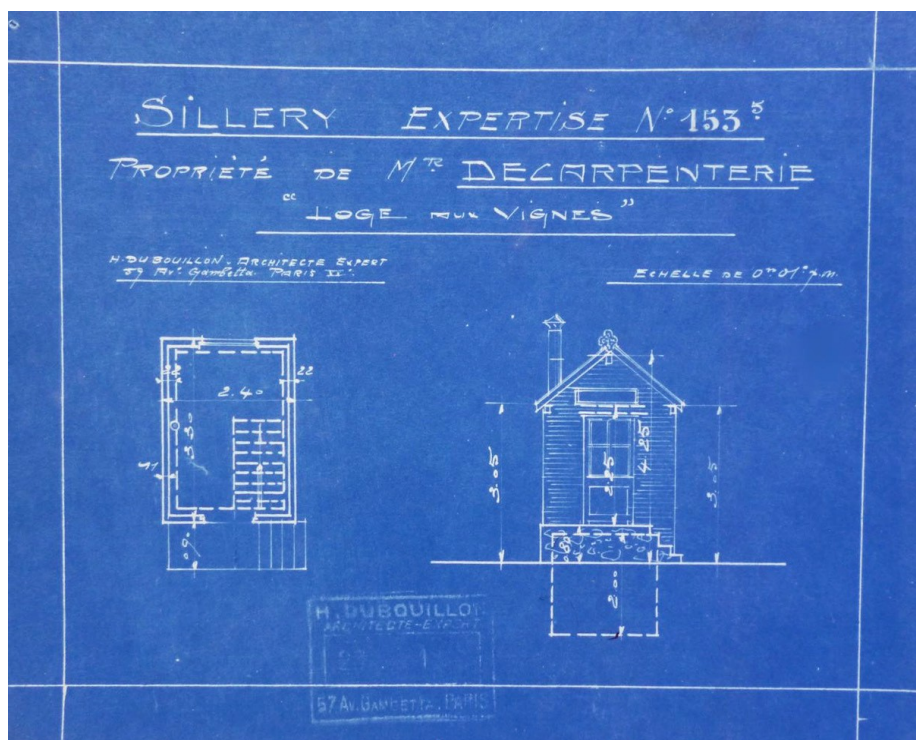 SILLERY EXPERTISE N° 153⁵
PROPRIÉTÉ DE MTR DECARPENTERIE
"LOGE AUX VIGNES"
H. DUBOUILLON. ARCHITECTE EXPERT
57 AVE. Gambetta. PARIS
ECHELLE DE 0m 01c p.m.
22
22
2.40
3.30
3.05
2.25
4.25
3.05
.80
2.00
H. DUBOUILLON
ARCHITECTE-EXPERT
57 AV. GAMBETTA. PARIS